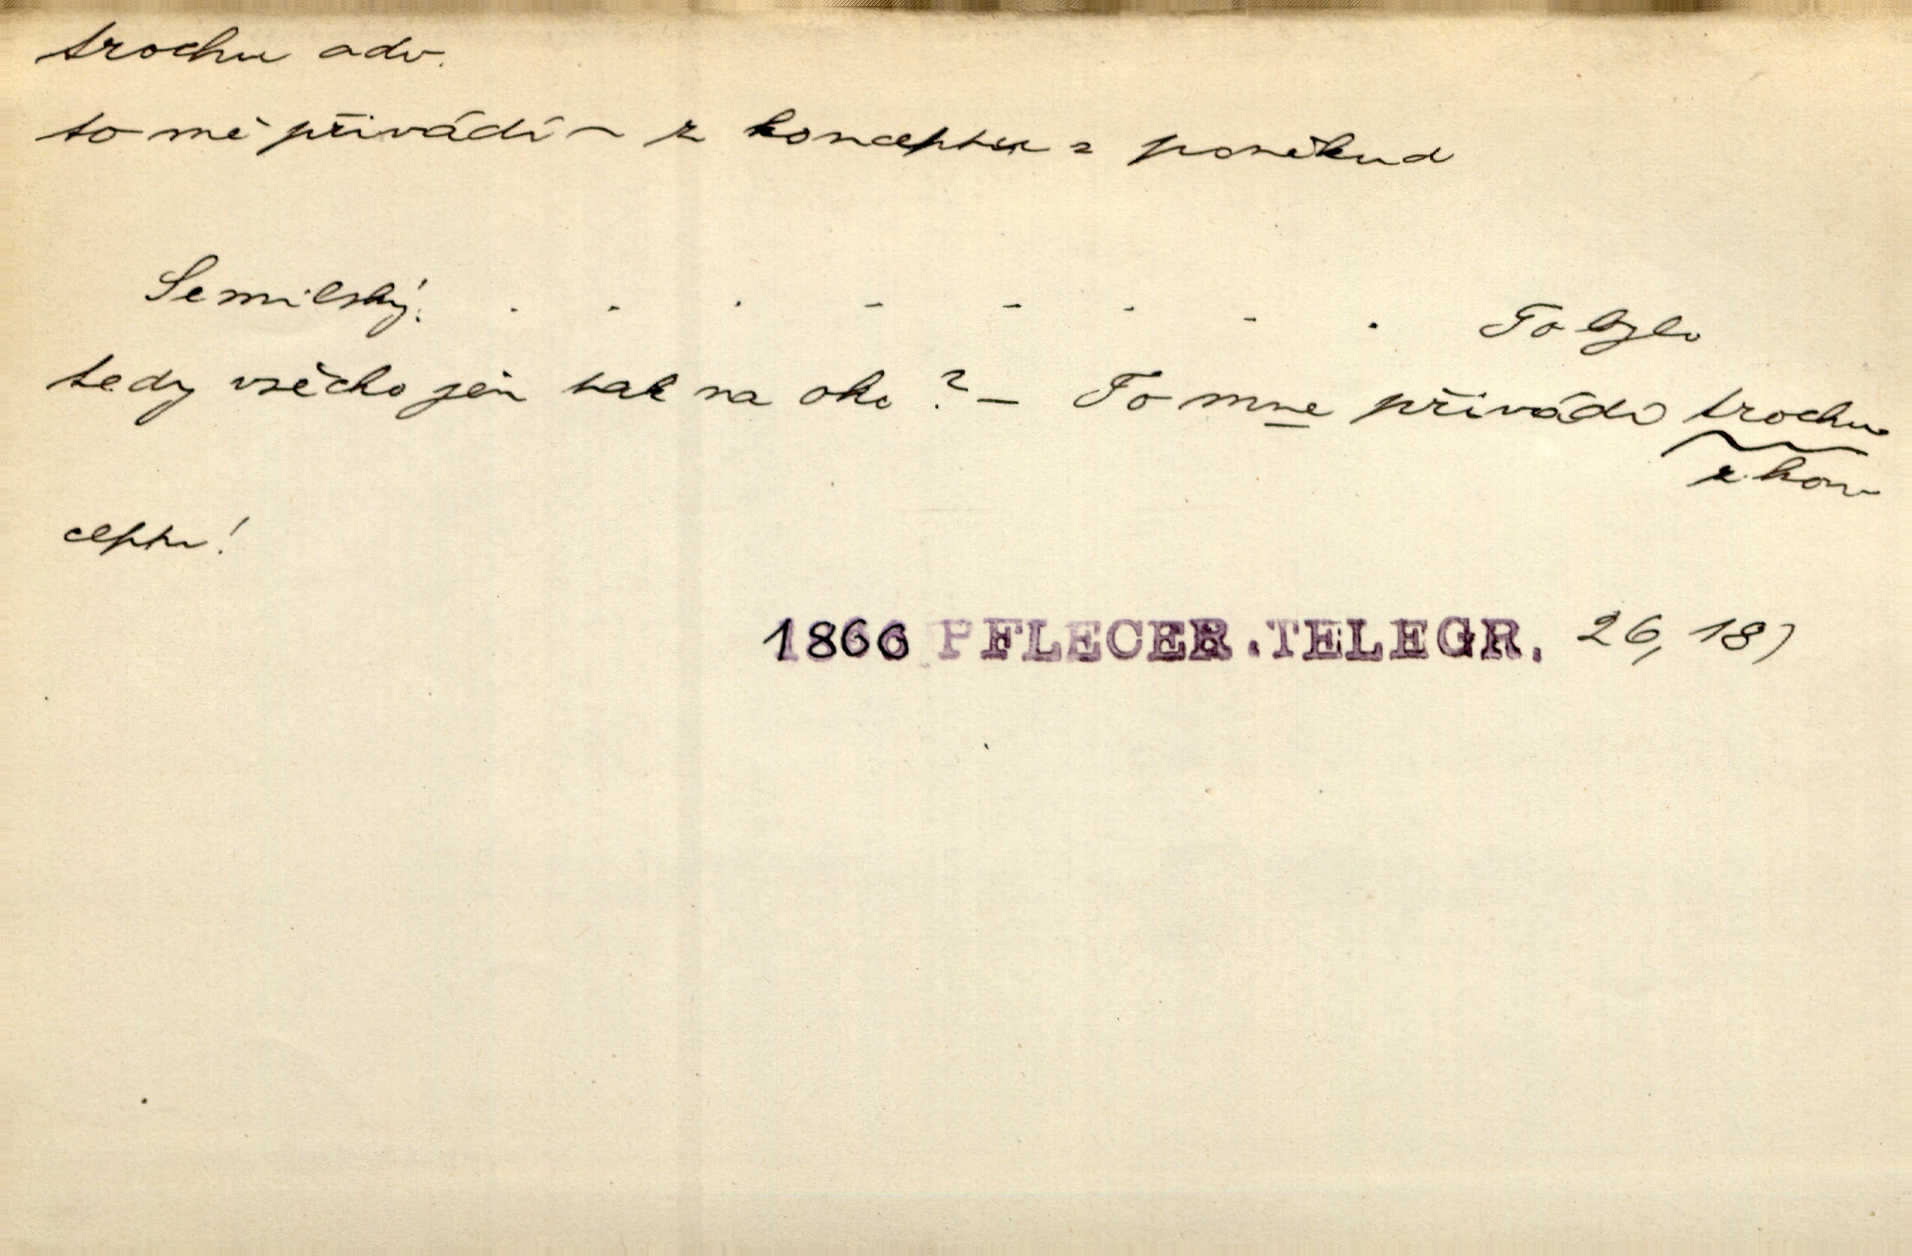 trochu adv.
to mě přivádí ~ z konceptu = poněkud
Semilský: . . . - - - - . To bylo
tedy všecko jen tak na oko? - To mne přivádí trochu
z kon
ceptu!
1866 PFLEGER. TELEGR. 26, 18)